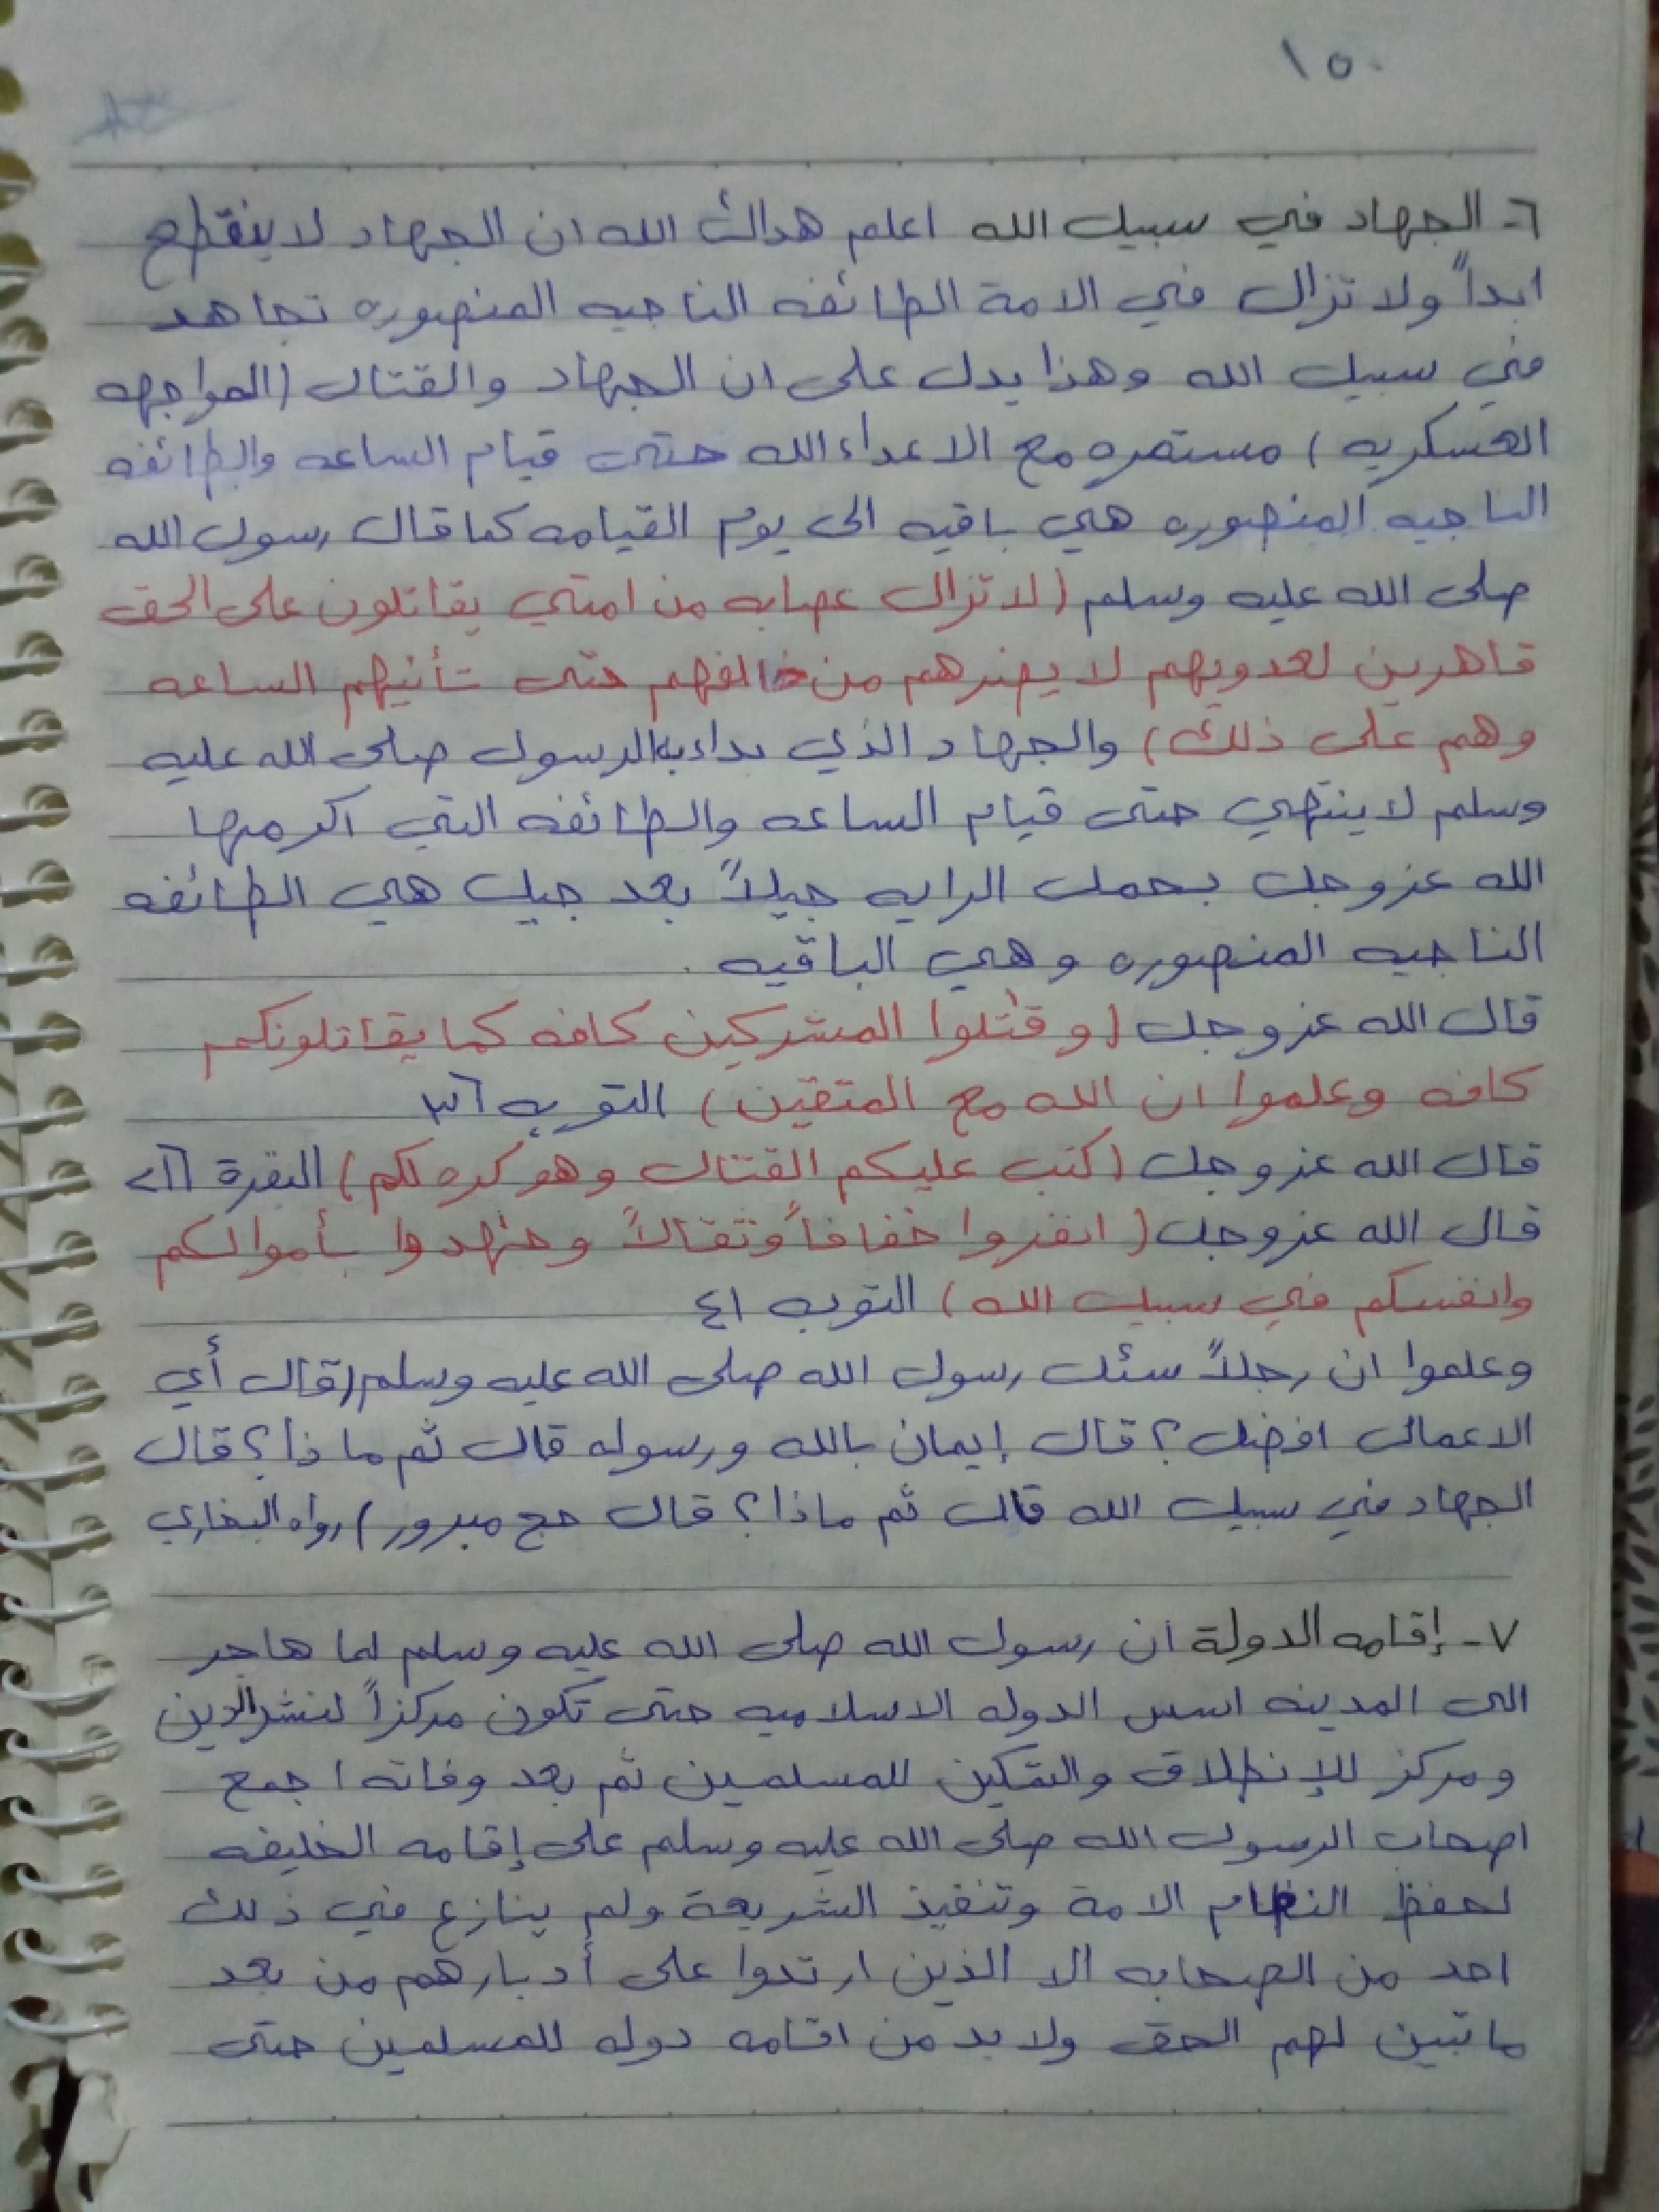 ١٥٠
٦- الجهاد في سبيل الله اعلم هداك الله ان الجهاد لا ينقطع
ابداً ولا تزال في الامة الطائفه الناجيه المنصوره تجاهد
في سبيل الله وهذا يدل على ان الجهاد والقتال (المواجهه
العسكريه) مستمره مع الاعداء الله حتى قيام الساعه والطائفه
الناجيه المنصوره هي باقيه الى يوم القيامه كما قال رسول الله
صلى الله عليه وسلم (لا تزال عصابه من امتي يقاتلون على الحق
قاهرين لعدويهم لا يضرهم من خالفهم حتى تأتيهم الساعه
وهم على ذلك) والجهاد الذي بداء به الرسول صلى الله عليه
وسلم لا ينتهي حتى قيام الساعه والطائفه التي اكرمها
الله عز وجل بحمل الرايه جيلاً بعد جيل هي الطائفه
الناجيه المنصوره وهي الباقيه .
قال الله عز وجل (وقٰتلوا المشركين كافه كما يقاتلونكم
كافه وعلموا ان الله مع المتقين) التوبه ٣٦
قال الله عز وجل (كتب عليكم القتال وهو كره لكم) البقرة ٢١٦
قال الله عز وجل (انفروا خفافاً وثقالاً وجٰهدوا بأموالكم
وانفسكم في سبيل الله) التوبه ٤١
وعلموا ان رجلاً سئل رسول الله صلى الله عليه وسلم (قال أي
الاعمال افضل؟ قال إيمان بالله ورسوله قال ثم ماذا؟ قال
الجهاد في سبيل الله قال ثم ماذا؟ قال حج مبرور) رواه البخاري
٧- إقامه الدولة ان رسول الله صلى الله عليه وسلم لما هاجر
الى المدينه اسس الدوله الاسلاميه حتى تكون مركزاً لنشر الدين
ومركز للإنطلاق والتمكين للمسلمين ثم بعد وفاته اجمع
اصحاب الرسول الله صلى الله عليه وسلم على إقامه الخليفه
لحفظ النظام الامة وتنفيذ الشريعة ولم ينازع في ذلك
احد من الصحابه الا الذين ارتدوا على أدبارهم من بعد
ما تبين لهم الحق ولا بد من اقامه دوله للمسلمين حتى